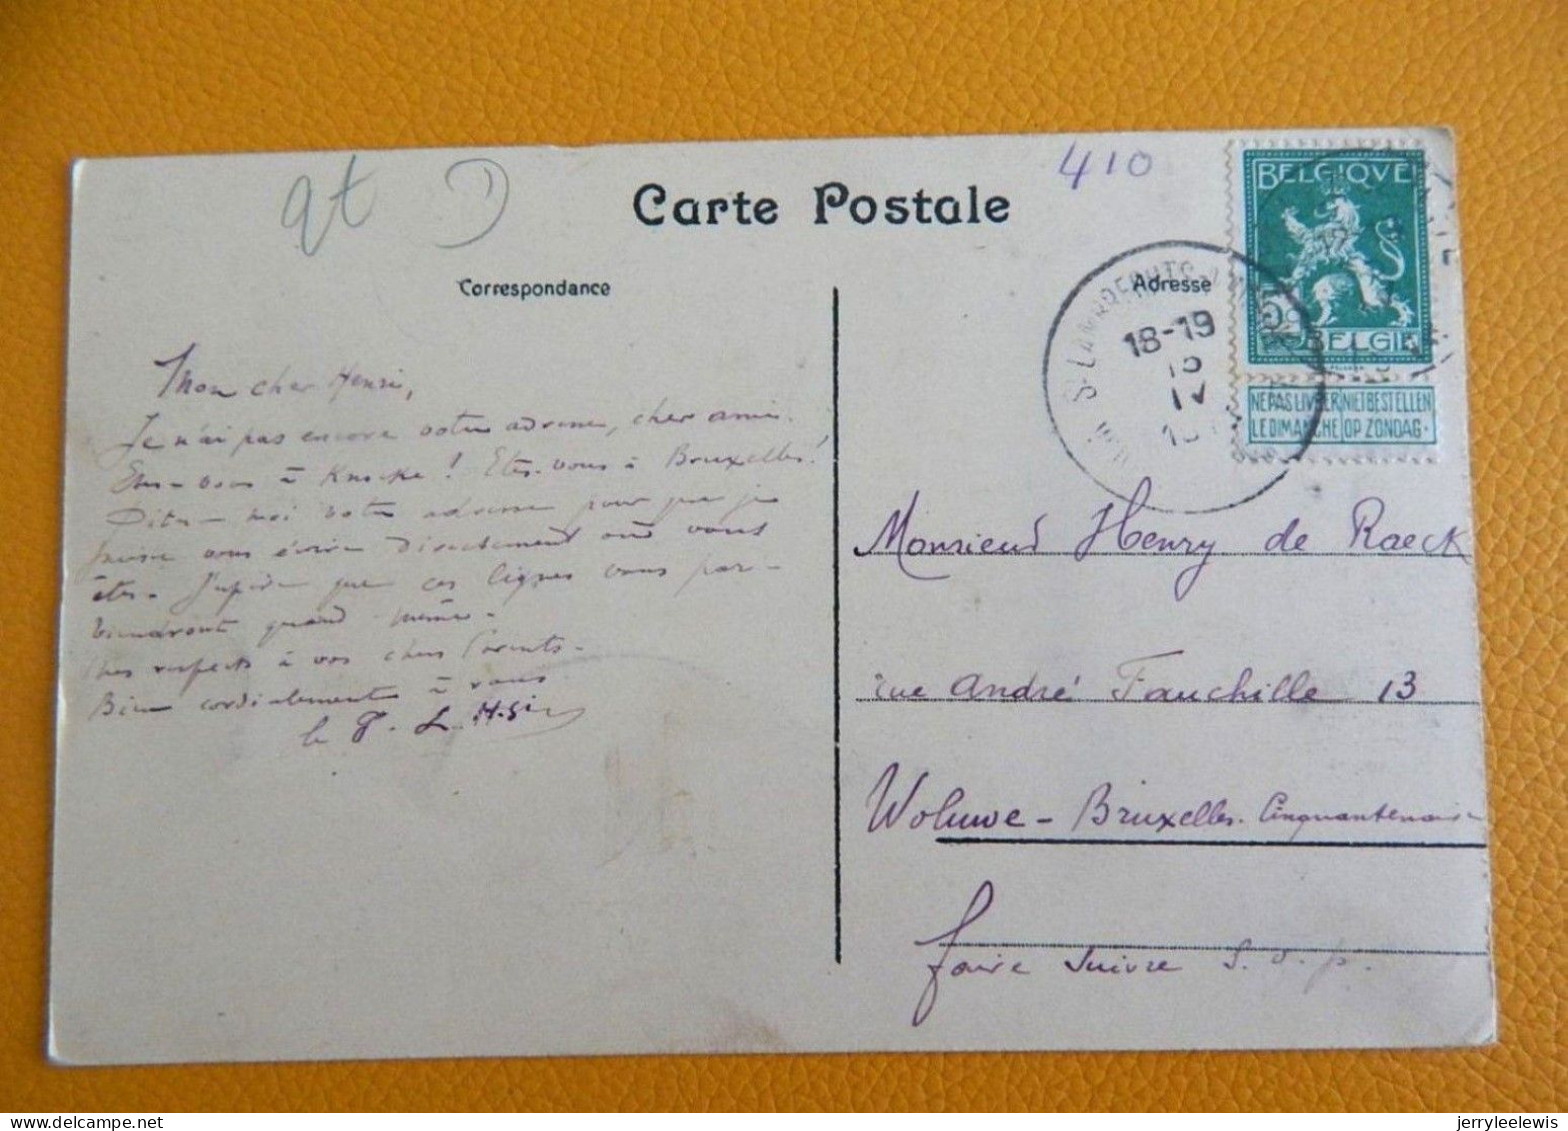 at D
410
Carte Postale
BELGIQUE
5
BELGIË
NE PAS LIVRER NIET BESTELLEN
LE DIMANCHE OP ZONDAG.
18-19
Correspondance
Adresse
Mon cher Henri,
Je n'ai pas encore votre adresse, cher ami.
Êtes-vous à Knocke ! Etes-vous à Bruxelles !
Dites-moi votre adresse pour que je
puisse vous écrire directement où vous
êtes. J'espère que ces lignes vous par-
viendront quand même.
Mes respects à vos chers Parents.
Bien cordialement à vous
Monsieur Henry de Raeck
rue André Fauchille 13
Woluwe - Bruxelles. Cinquantenaire
faire suivre S. v. p.
jerryleelewis